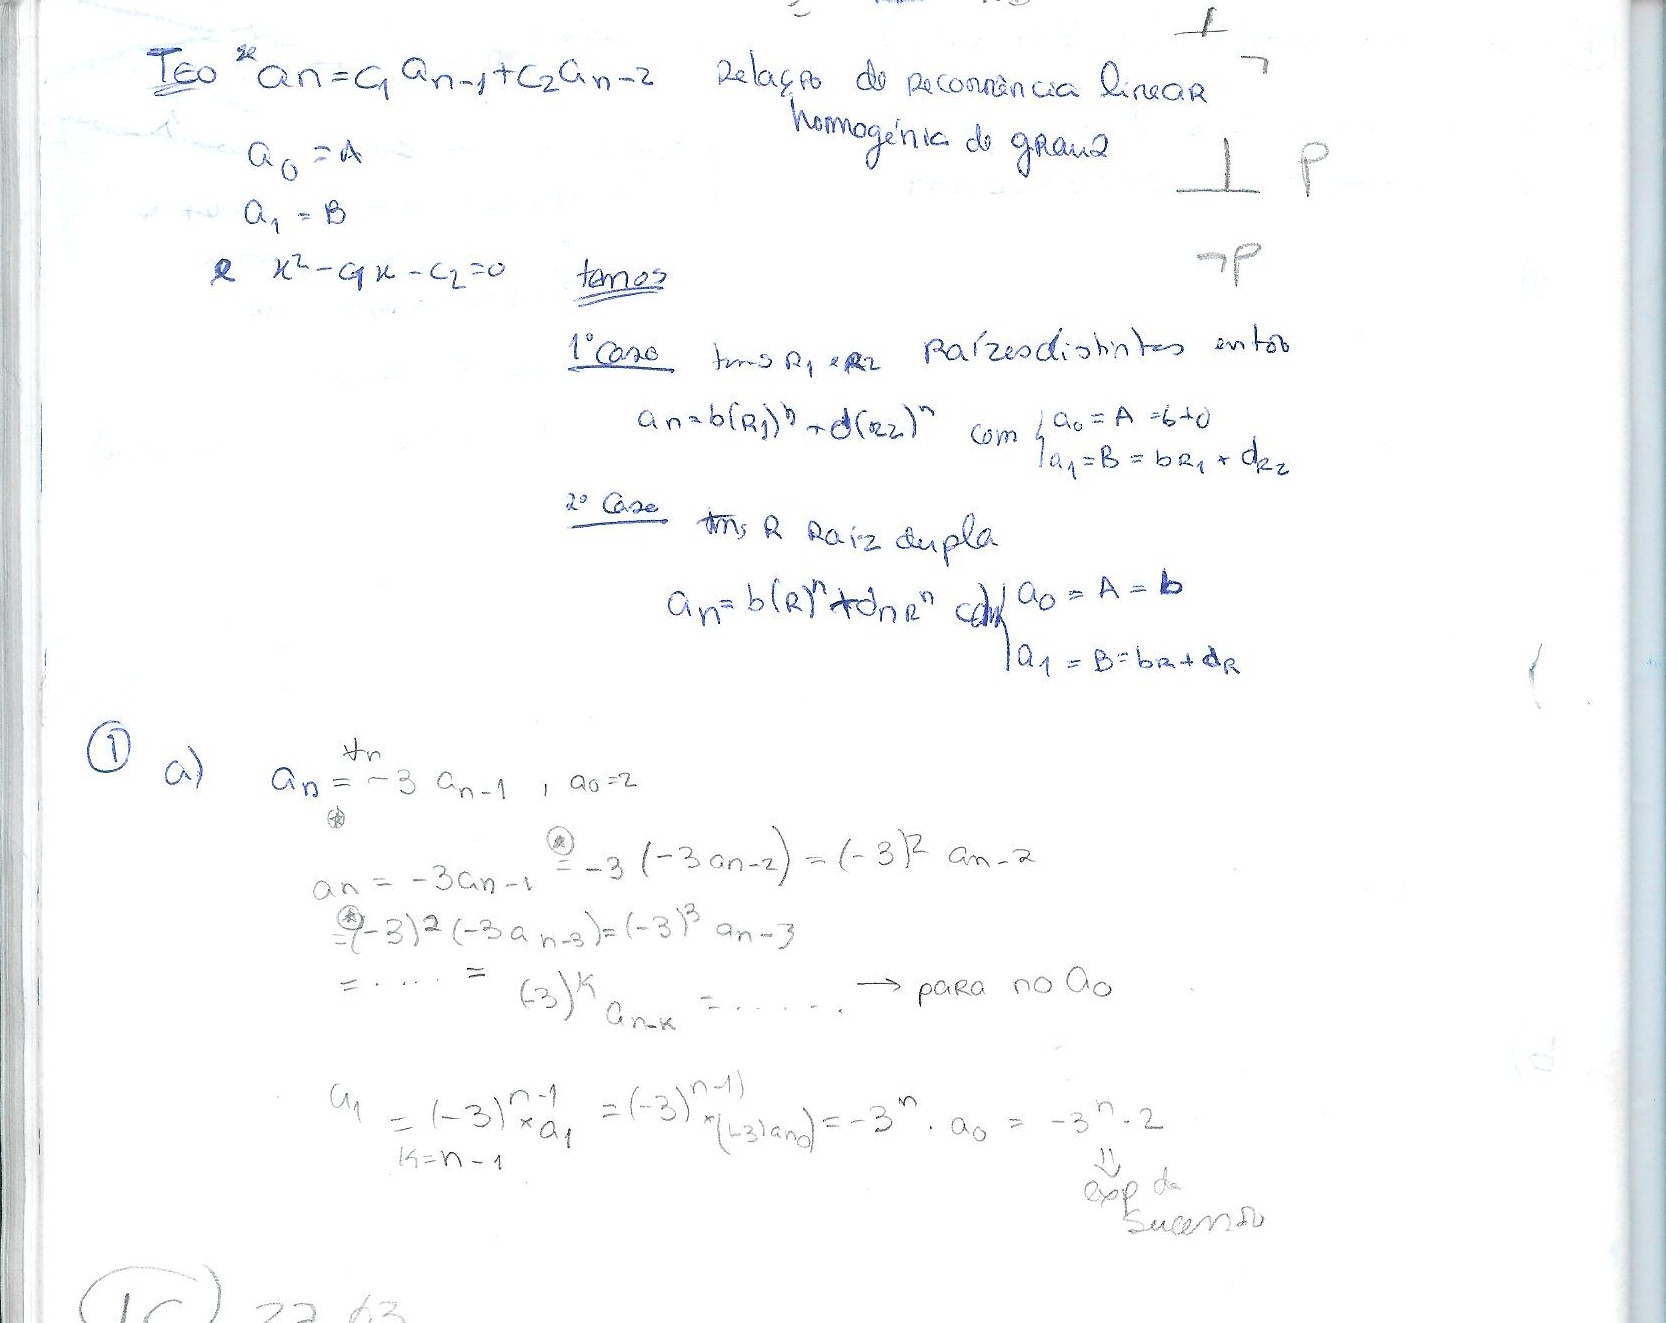 TEO se an = c1 an-1 + c2 an-2 Relação de recorrência linear ¬
homogénia de grau 2
a0 = A
⊥ P
a1 = B
¬P
e x² - c1x - c2 = 0 temos
1º Caso temos R1 e R2 Raízes distintas então
an = b(R1)^n + d(R2)^n com { a0 = A = b+d
a1 = B = bR1 + dR2
2º Caso temos R Raiz dupla
an = b(R)^n + dnR^n com { a0 = A = b
a1 = B = bR + dR
① a) an = -3 an-1 , a0 = 2
∀n
⊛
an = -3an-1 ⊛= -3 (-3an-2) = (-3)² an-2
⊛= (-3)² (-3an-3) = (-3)³ an-3
= .... = (-3)^k an-k = ...... → para no a0
a1 = (-3)^n-1 × a1 = (-3)^n-1) × (-3)an0) = -3^n . a0 = -3^n . 2
k = n-1
⇓
exp da
sucessão